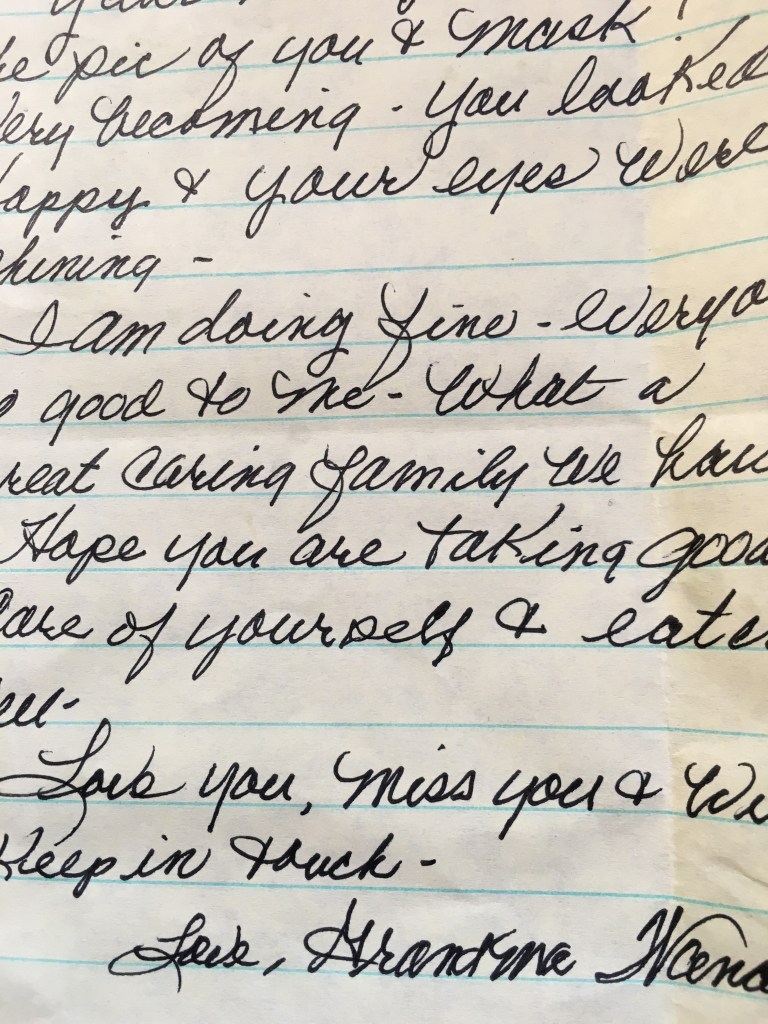 he pic of you & mask!
Very becoming - you looked
Happy & your eyes were
shining -
I am doing fine - everyo
so good to me - What a
reat caring family we hav
Hope you are taking good
Care of yourself & eati
Love you, miss you & wi
Keep in touch -
Love, Grandma